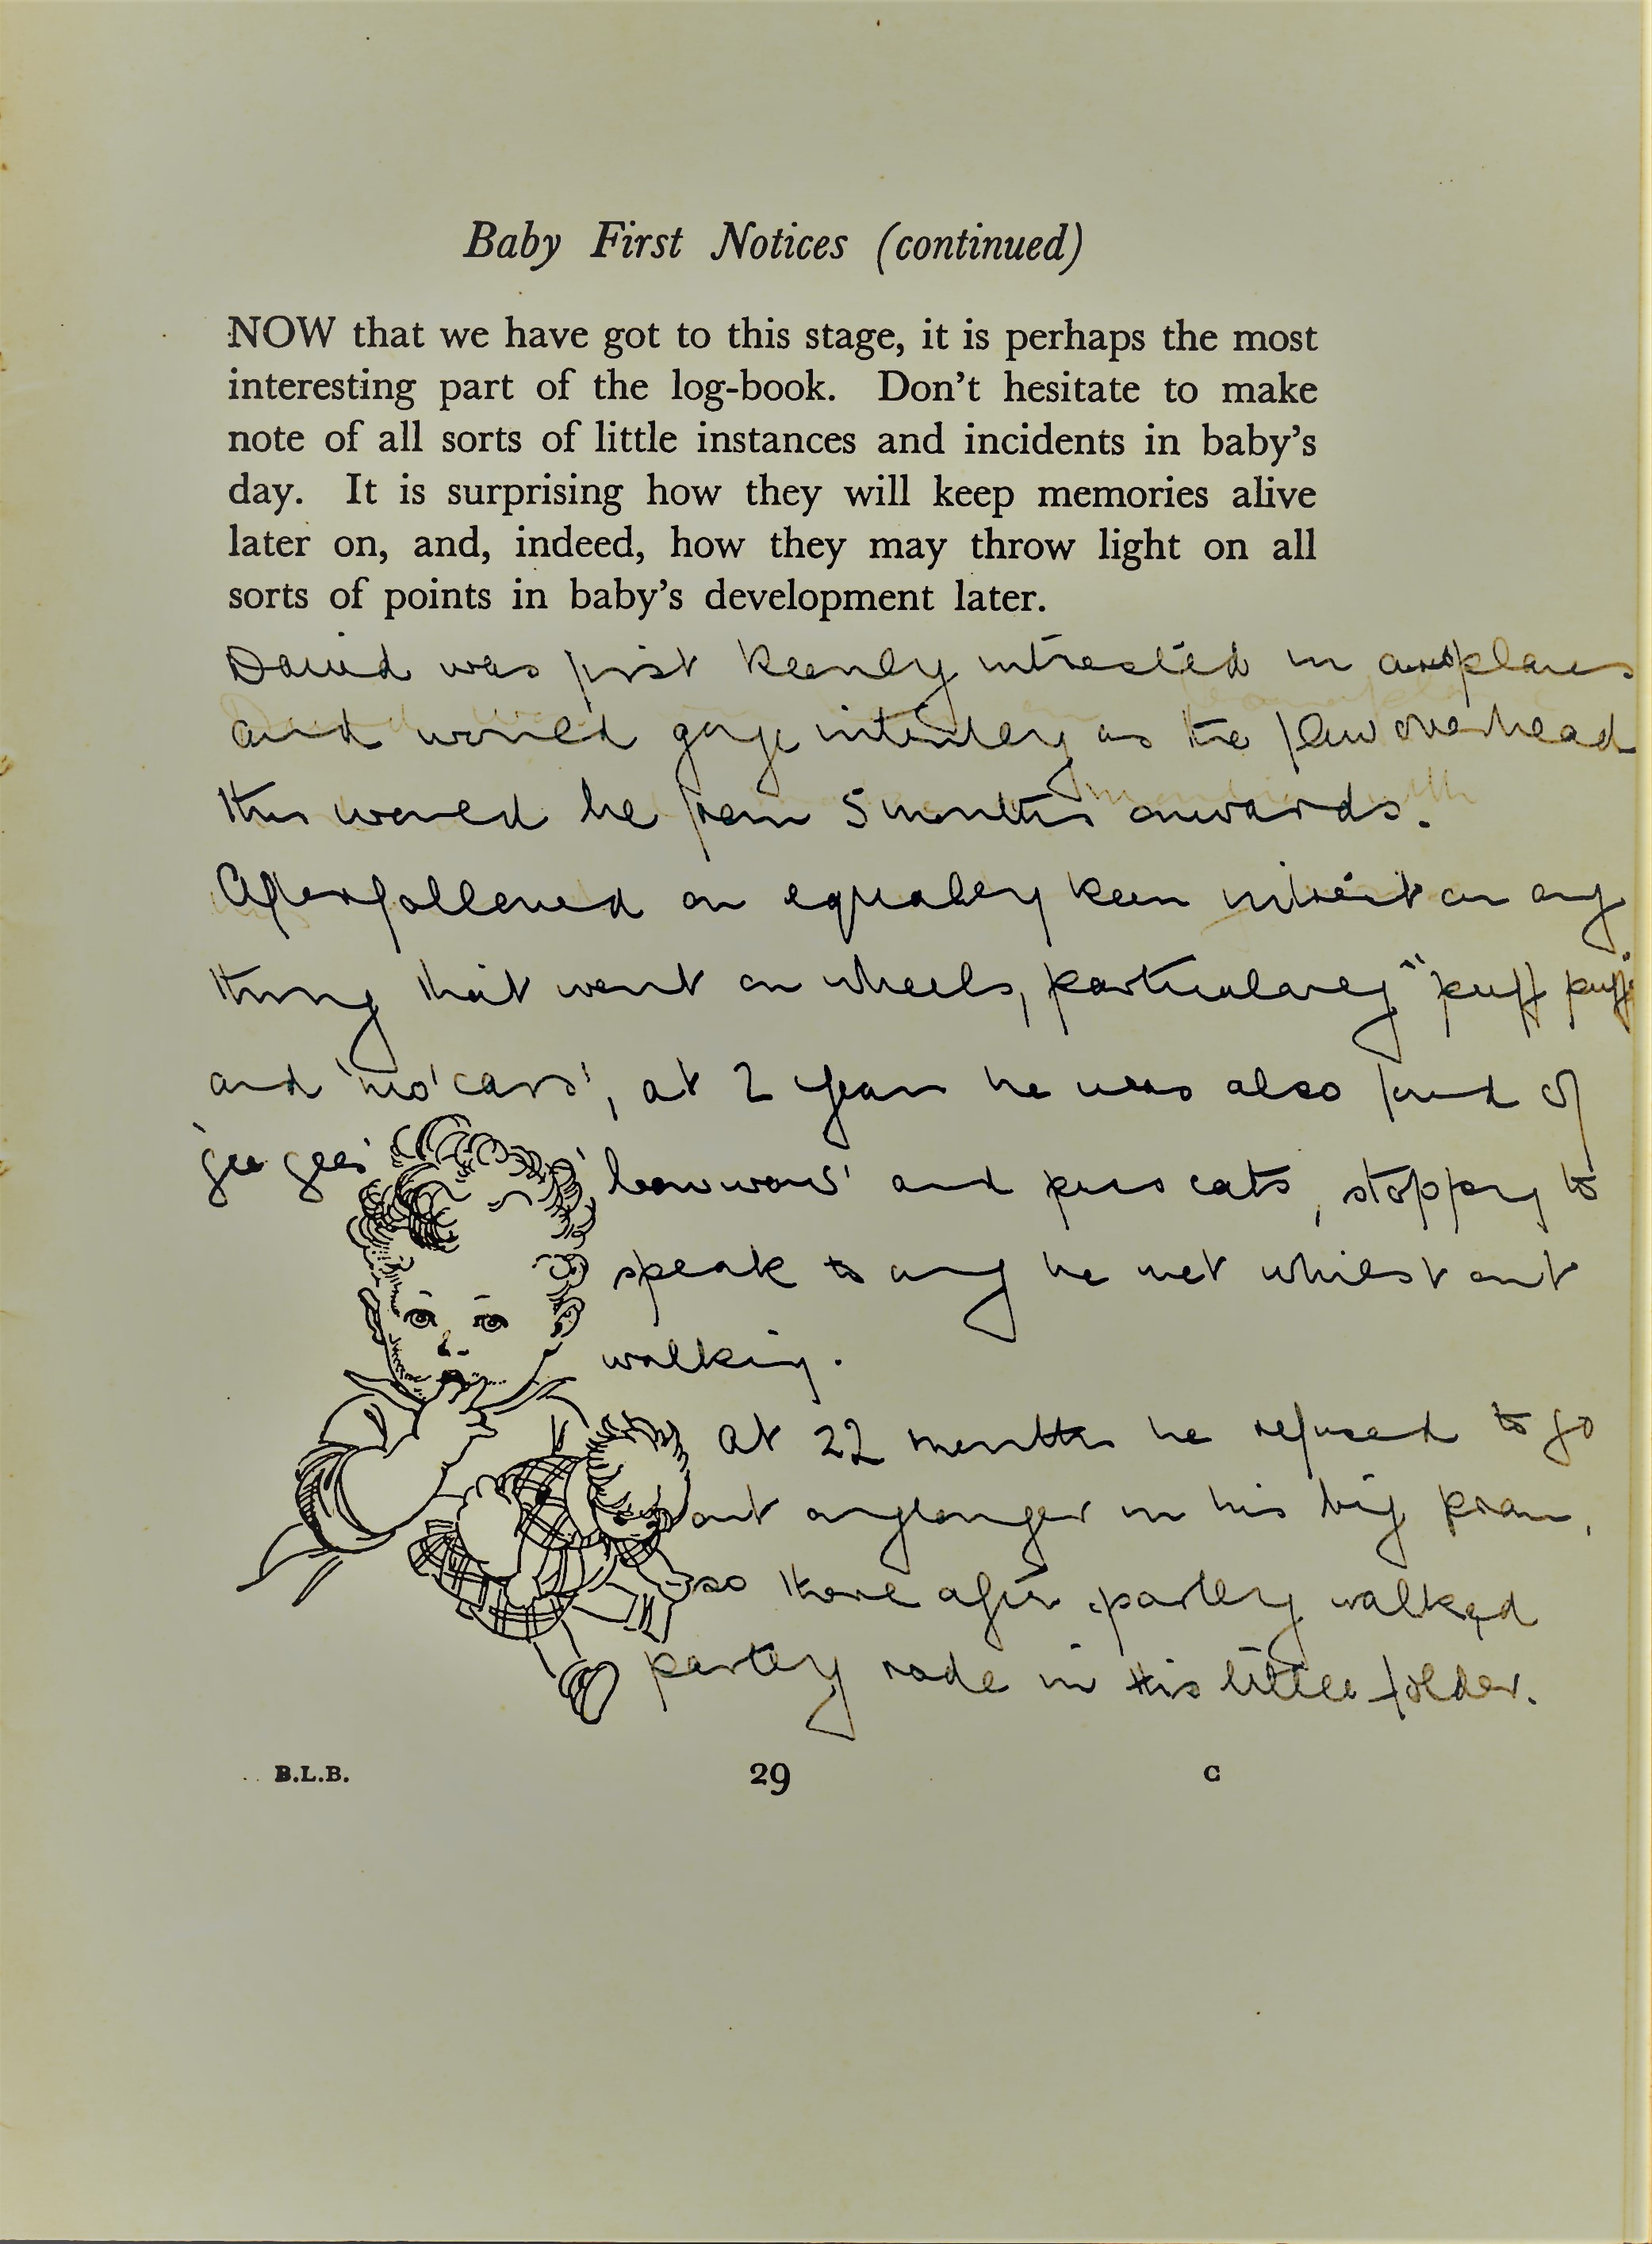 Baby First Notices (continued)
NOW that we have got to this stage, it is perhaps the most
interesting part of the log-book. Don't hesitate to make
note of all sorts of little instances and incidents in baby's
day. It is surprising how they will keep memories alive
later on, and, indeed, how they may throw light on all
sorts of points in baby's development later.
David was first keenly intrested in aeroplanes
and would gaze intently as the flew overhead
this would be from 5 months onwards.
After followed an equally keen interest in any
thing that went on wheels, particularly "puff puffs"
and 'mo'cars', at 2 years he was also fond of
'gee gees' 'bow wows' and puss cats, stopping to
speak to any he met whilst out
walking.
At 22 months he refused to go
out anylonger in his big pram,
so there after partly walked
partly rode in his little folder.
B.L.B. 29 C